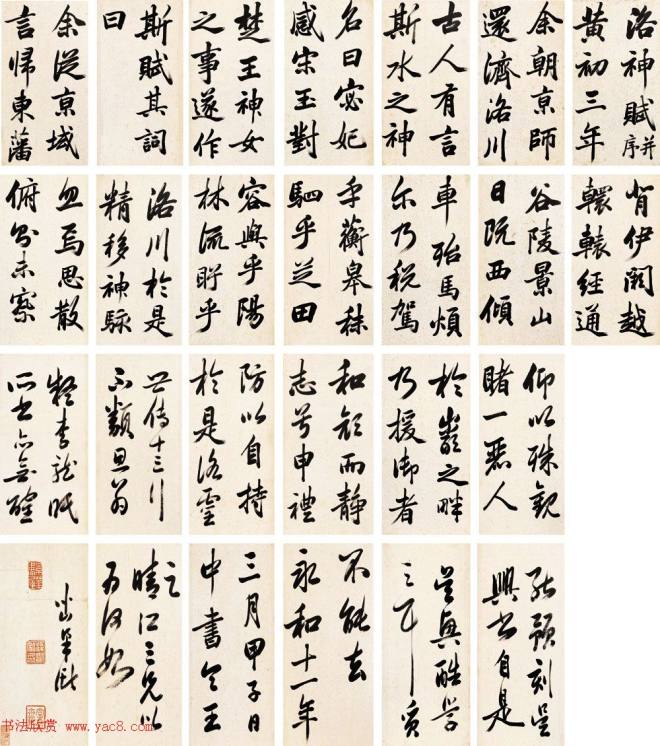 洛神賦并序
黃初三年
余朝京師
還濟洛川
古人有言
斯水之神
名曰宓妃
感宋玉對
楚王神女
之事遂作
斯賦其詞
曰
余從京域
言歸東藩
背伊闕越
轘轅經通
谷陵景山
日既西傾
車殆馬煩
尔乃税駕
乎蘅皋秣
駟乎芝田
容與乎陽
林流眄乎
洛川於是
精移神駭
忽焉思散
俯則未察
仰以殊觀
睹一麗人
於巖之畔
乃援御者
和顏而靜
志兮申禮
防以自持
於是洛靈
世傳十三行
不類
李龍眠
所書
興書自是
不能去
永和十一年
三月甲子日
中書令王
之
晴江三兄以
為何如
书法欣赏 www.yac8.com